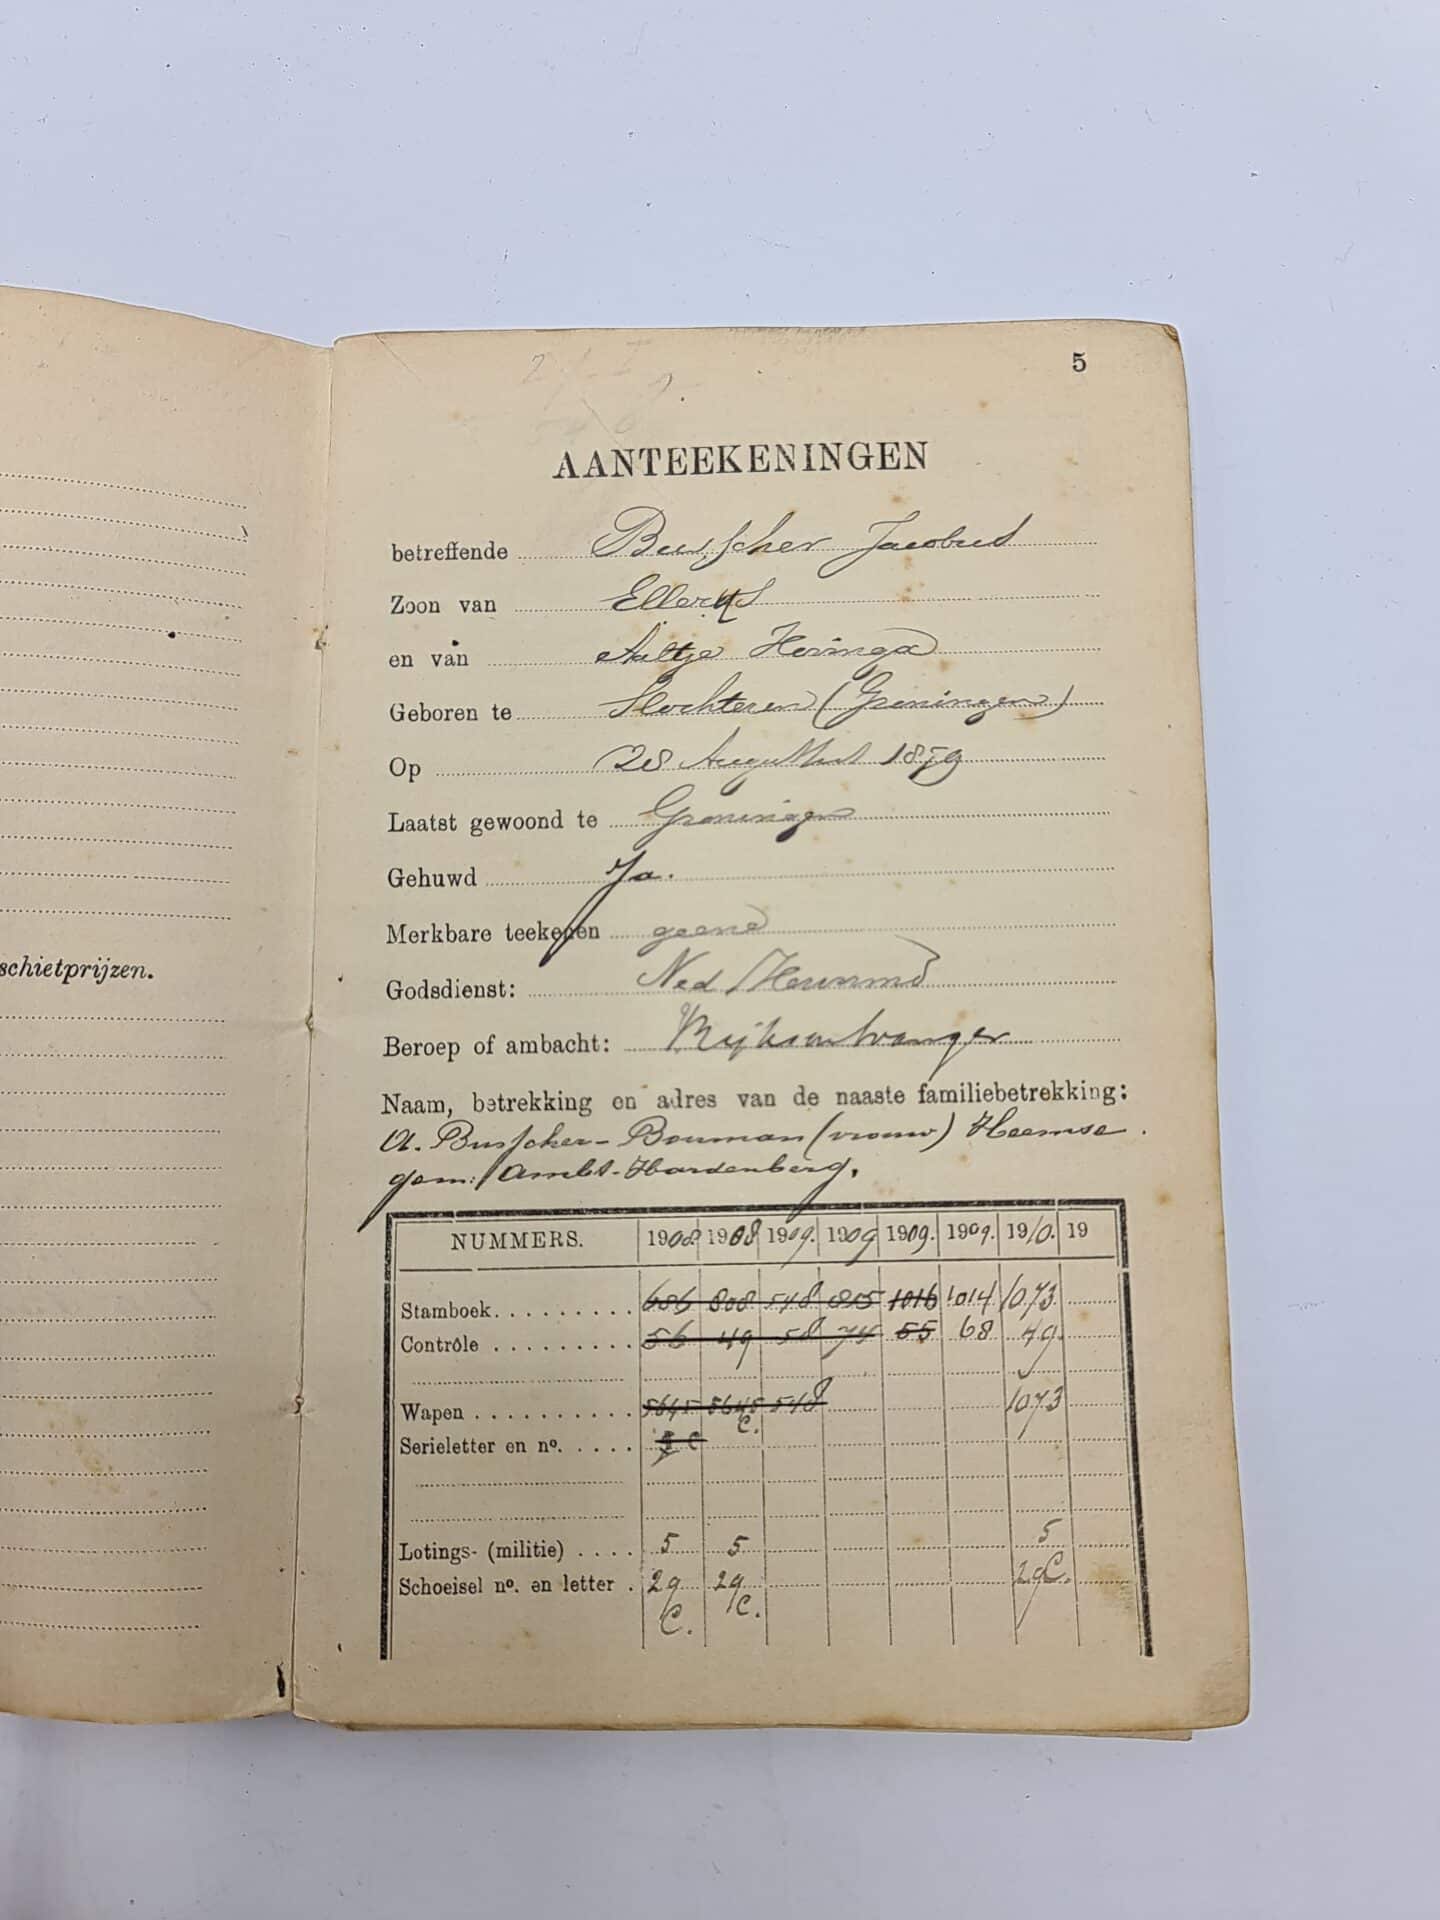 schietprijzen.
5
AANTEEKENINGEN
betreffende Busscher Jacobus
Zoon van Ellerus
en van Aaltje Heringa
Geboren te Slochteren (Groningen)
Op 28 Augustus 1879
Laatst gewoond te Groningen
Gehuwd Ja.
Merkbare teekenen geene
Godsdienst: Ned Hervormd
Beroep of ambacht: Rijksontvanger
Naam, betrekking en adres van de naaste familiebetrekking:
A. Busscher-Bouman (vrouw) Heemse.
gem: Ambt-Hardenberg.
NUMMERS. 1908. 1908 1909. 1909 1909. 1909. 1910. 19
Stamboek 686 808 548 815 1016 1014 1073
Contrôle 56 49 58 74 55 68 49.
Wapen 5645 5645 548 1073
C.
Serieletter en no. C
Lotings- (militie) 5 5 5
Schoeisel no. en letter 29 29 29C.
C. C.